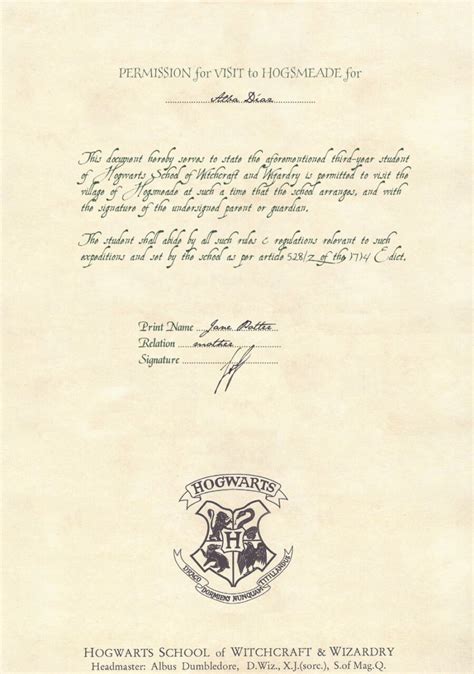 PERMISSION for VISIT to HOGSMEADE for
Alba Díaz
This document hereby serves to state the aforementioned third-year student
of Hogwarts School of Witchcraft and Wizardry is permitted to visit the
village of Hogsmeade at such a time that the school arranges, and with
the signature of the undersigned parent or guardian.
The student shall abide by all such rules & regulations relevant to such
expeditions and set by the school as per article 528/z of the 1714 Edict.
Print Name Jane Potter
Relation mother
Signature
HOGWARTS
H
DRACO DORMIENS NUNQUAM TITILLANDUS
HOGWARTS SCHOOL of WITCHCRAFT & WIZARDRY
Headmaster: Albus Dumbledore, D.Wiz., X.J.(sorc.), S.of Mag.Q.